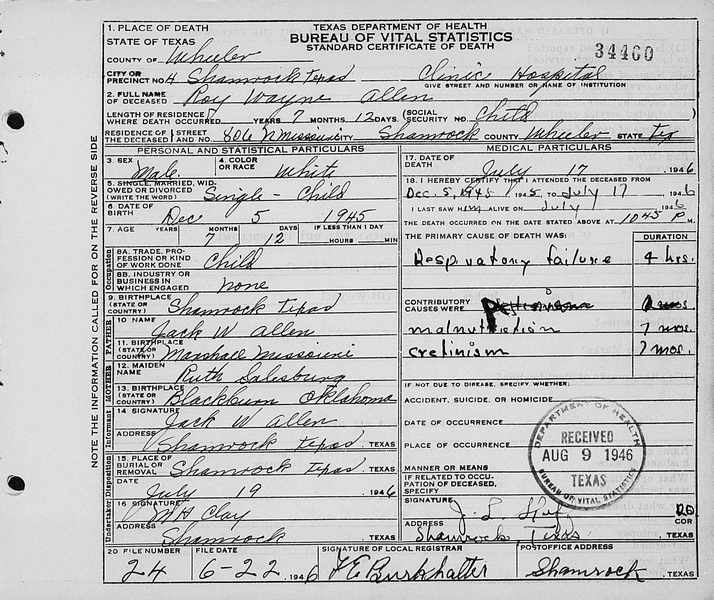 1. PLACE OF DEATH
TEXAS DEPARTMENT OF HEALTH
BUREAU OF VITAL STATISTICS
STANDARD CERTIFICATE OF DEATH
34460
STATE OF TEXAS
COUNTY OF Wheeler
CITY OR PRECINCT NO. 4 Shamrock Texas Clinic Hospital
GIVE STREET AND NUMBER OR NAME OF INSTITUTION
2. FULL NAME OF DECEASED Roy Wayne Allen
LENGTH OF RESIDENCE WHERE DEATH OCCURRED YEARS 7 MONTHS 12 DAYS (SOCIAL SECURITY NO. Child
RESIDENCE OF THE DECEASED STREET AND NO. 806 N Missouri CITY Shamrock COUNTY Wheeler STATE Tex
PERSONAL AND STATISTICAL PARTICULARS
3. SEX Male 4. COLOR OR RACE White
5. SINGLE, MARRIED, WIDOWED OR DIVORCED (WRITE THE WORD) Single - Child
6. DATE OF BIRTH Dec 5 1945
7. AGE YEARS MONTHS DAYS IF LESS THAN 1 DAY
7 12 HOURS MIN
8A. TRADE, PROFESSION OR KIND OF WORK DONE Child
8B. INDUSTRY OR BUSINESS IN WHICH ENGAGED None
9. BIRTHPLACE (STATE OR COUNTRY) Shamrock Texas
10 NAME Jack W Allen
11. BIRTHPLACE (STATE OR COUNTRY) Marshall Missouri
12. MAIDEN NAME Ruth Salesburg
13. BIRTHPLACE (STATE OR COUNTRY) Blackburn Oklahoma
14 SIGNATURE Jack W Allen
ADDRESS Shamrock Texas, TEXAS
15. PLACE OF BURIAL OR REMOVAL Shamrock Texas, TEXAS
DATE July 19 1946
16 SIGNATURE Clay
ADDRESS Shamrock, TEXAS
20 FILE NUMBER FILE DATE
24 6-22 1946
MEDICAL PARTICULARS
17. DATE OF DEATH July 17 1946
18. I HEREBY CERTIFY THAT I ATTENDED THE DECEASED FROM
Dec. 5, 1945 1945 TO July 17 1946
I LAST SAW him ALIVE ON July 1946
THE DEATH OCCURRED ON THE DATE STATED ABOVE AT 1045 P M.
THE PRIMARY CAUSE OF DEATH WAS: DURATION
Respiratory failure 4 hrs.
CONTRIBUTORY CAUSES WERE
malnutrition 7 mos
cretinism 7 mos.
IF NOT DUE TO DISEASE, SPECIFY WHETHER:
ACCIDENT, SUICIDE, OR HOMICIDE
DATE OF OCCURRENCE
PLACE OF OCCURRENCE
MANNER OR MEANS
IF RELATED TO OCCUPATION OF DECEASED, SPECIFY
SIGNATURE J. L.
DO
COR
ADDRESS Shamrock, Texas, TEXAS
SIGNATURE OF LOCAL REGISTRAR POSTOFFICE ADDRESS
F E Burkhalter Shamrock, TEXAS
DEPARTMENT OF HEALTH
RECEIVED
AUG 9 1946
TEXAS
BUREAU OF VITAL STATISTICS
NOTE THE INFORMATION CALLED FOR ON THE REVERSE SIDE
Occupation
FATHER
MOTHER
Informant
Disposition
Undertaker